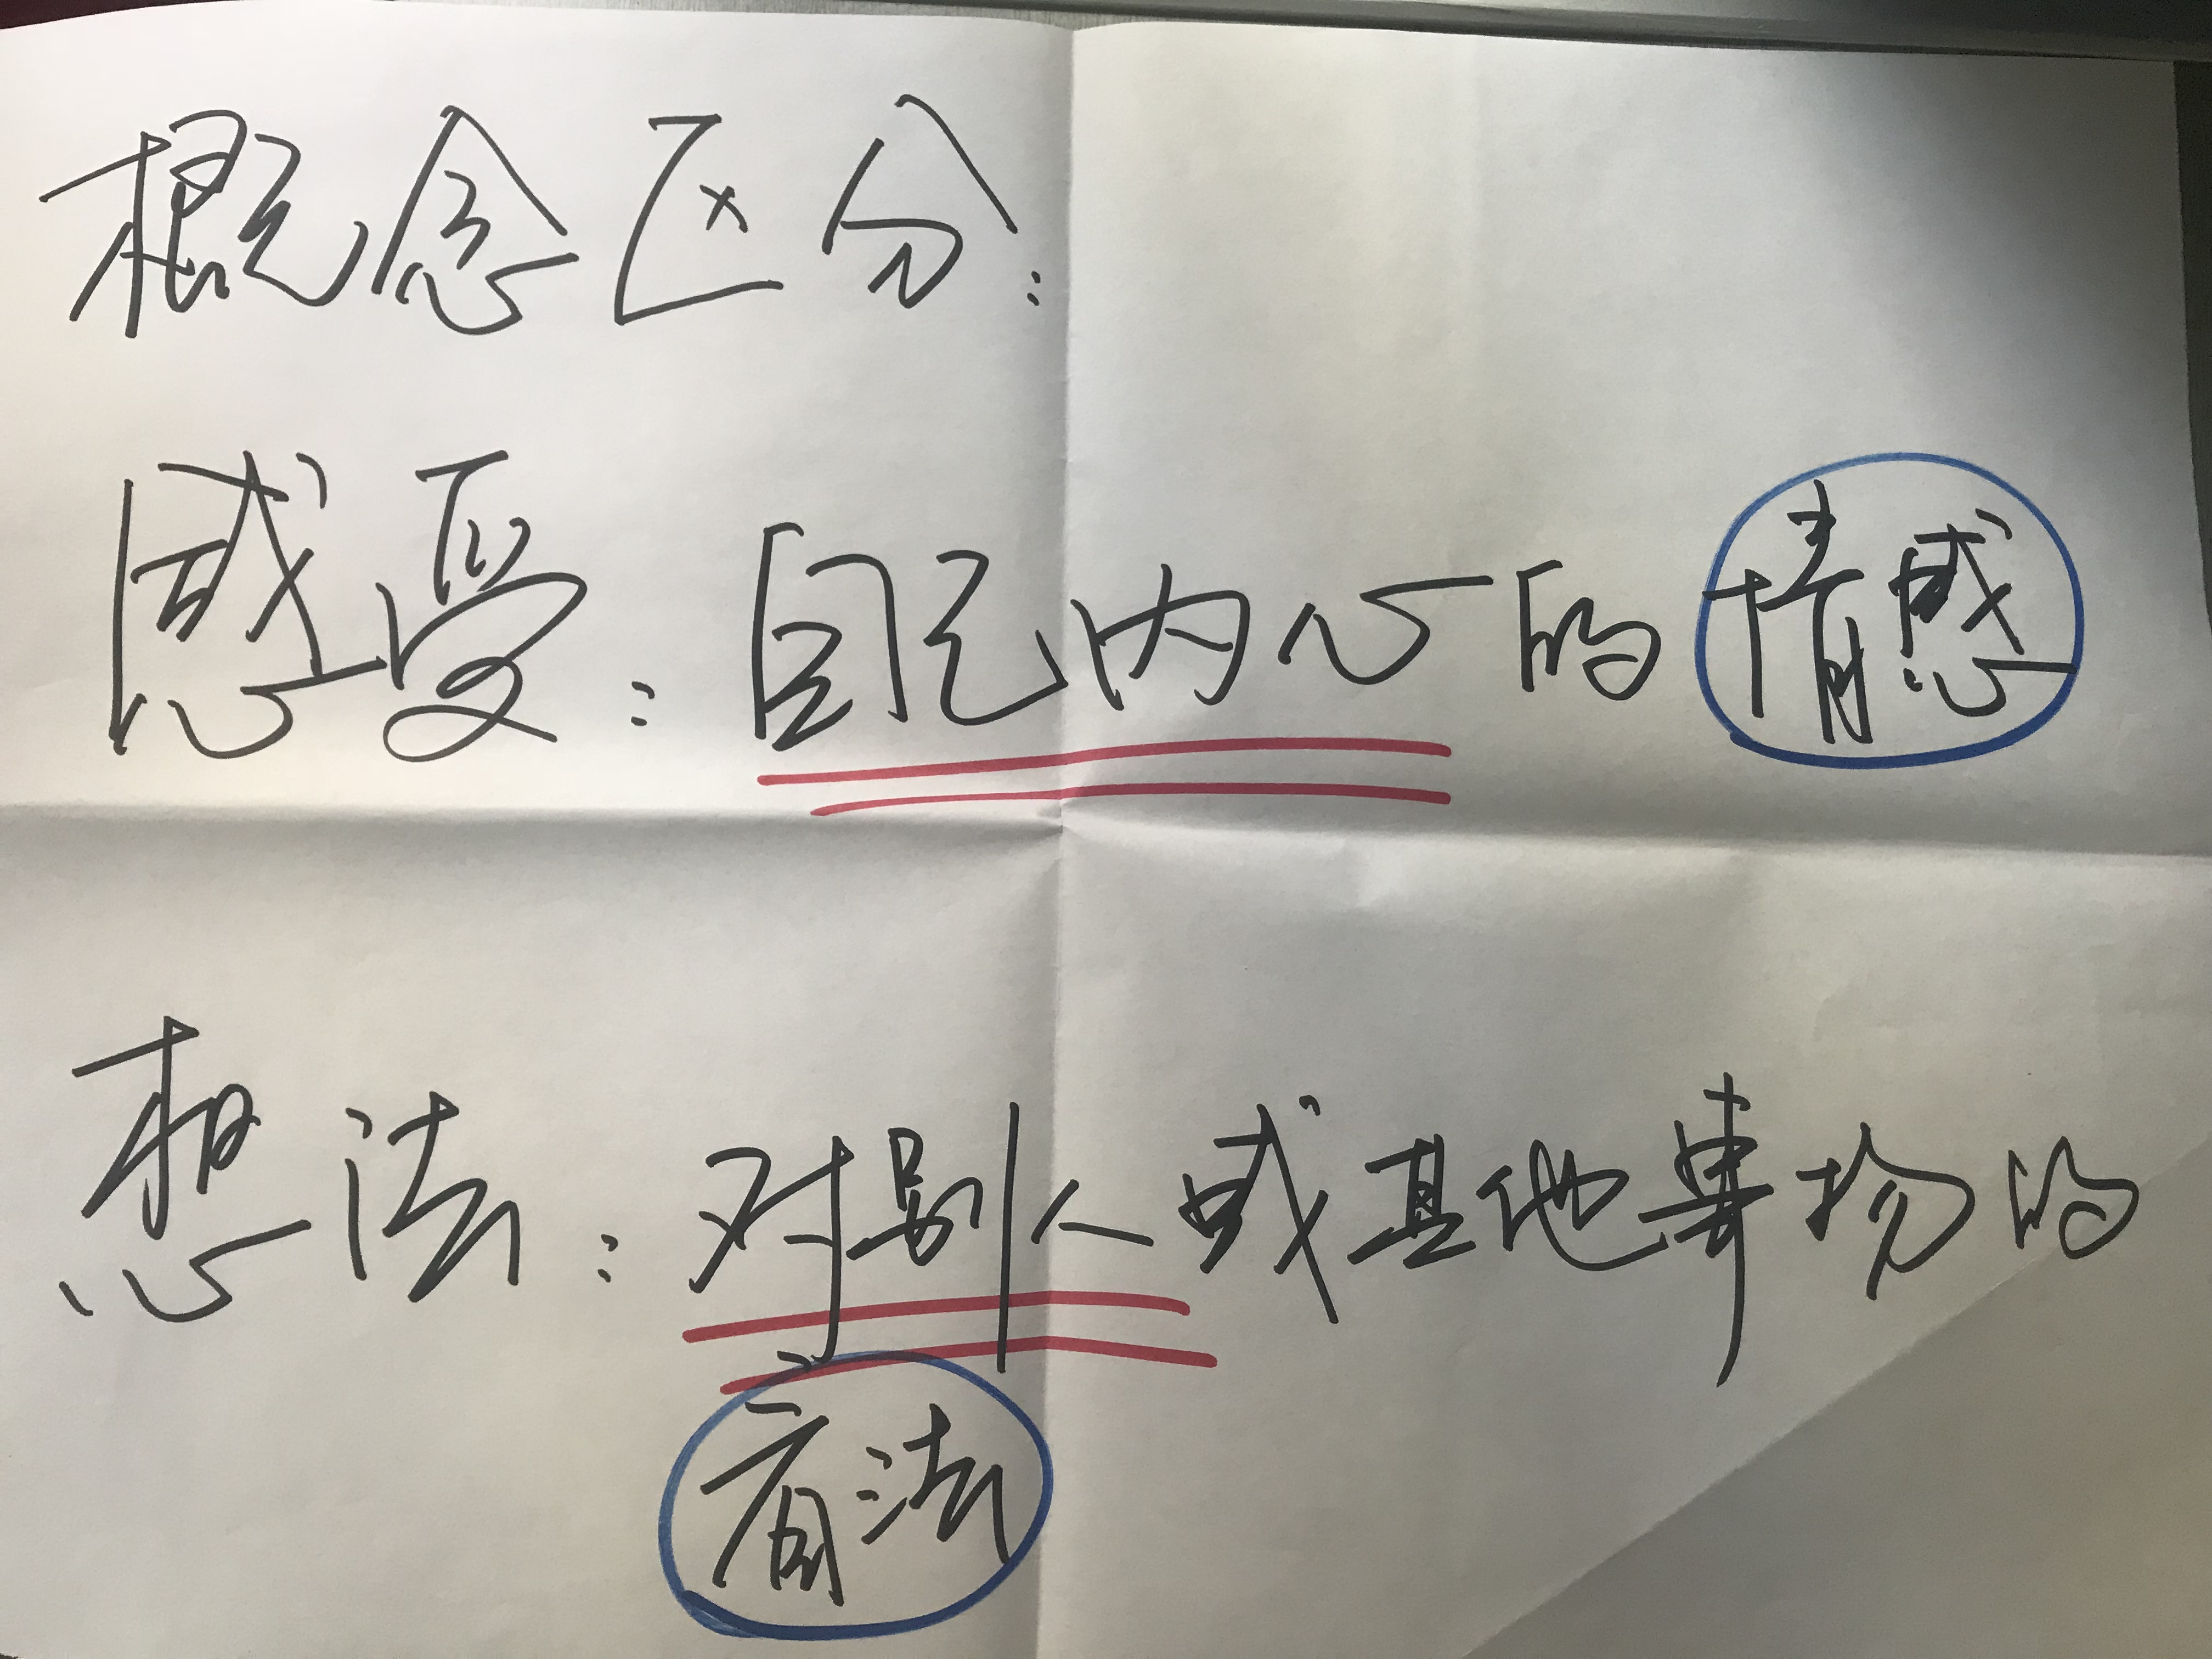 概念区分：
感受：自己内心的情感
想法：对别人或其他事物的
看法